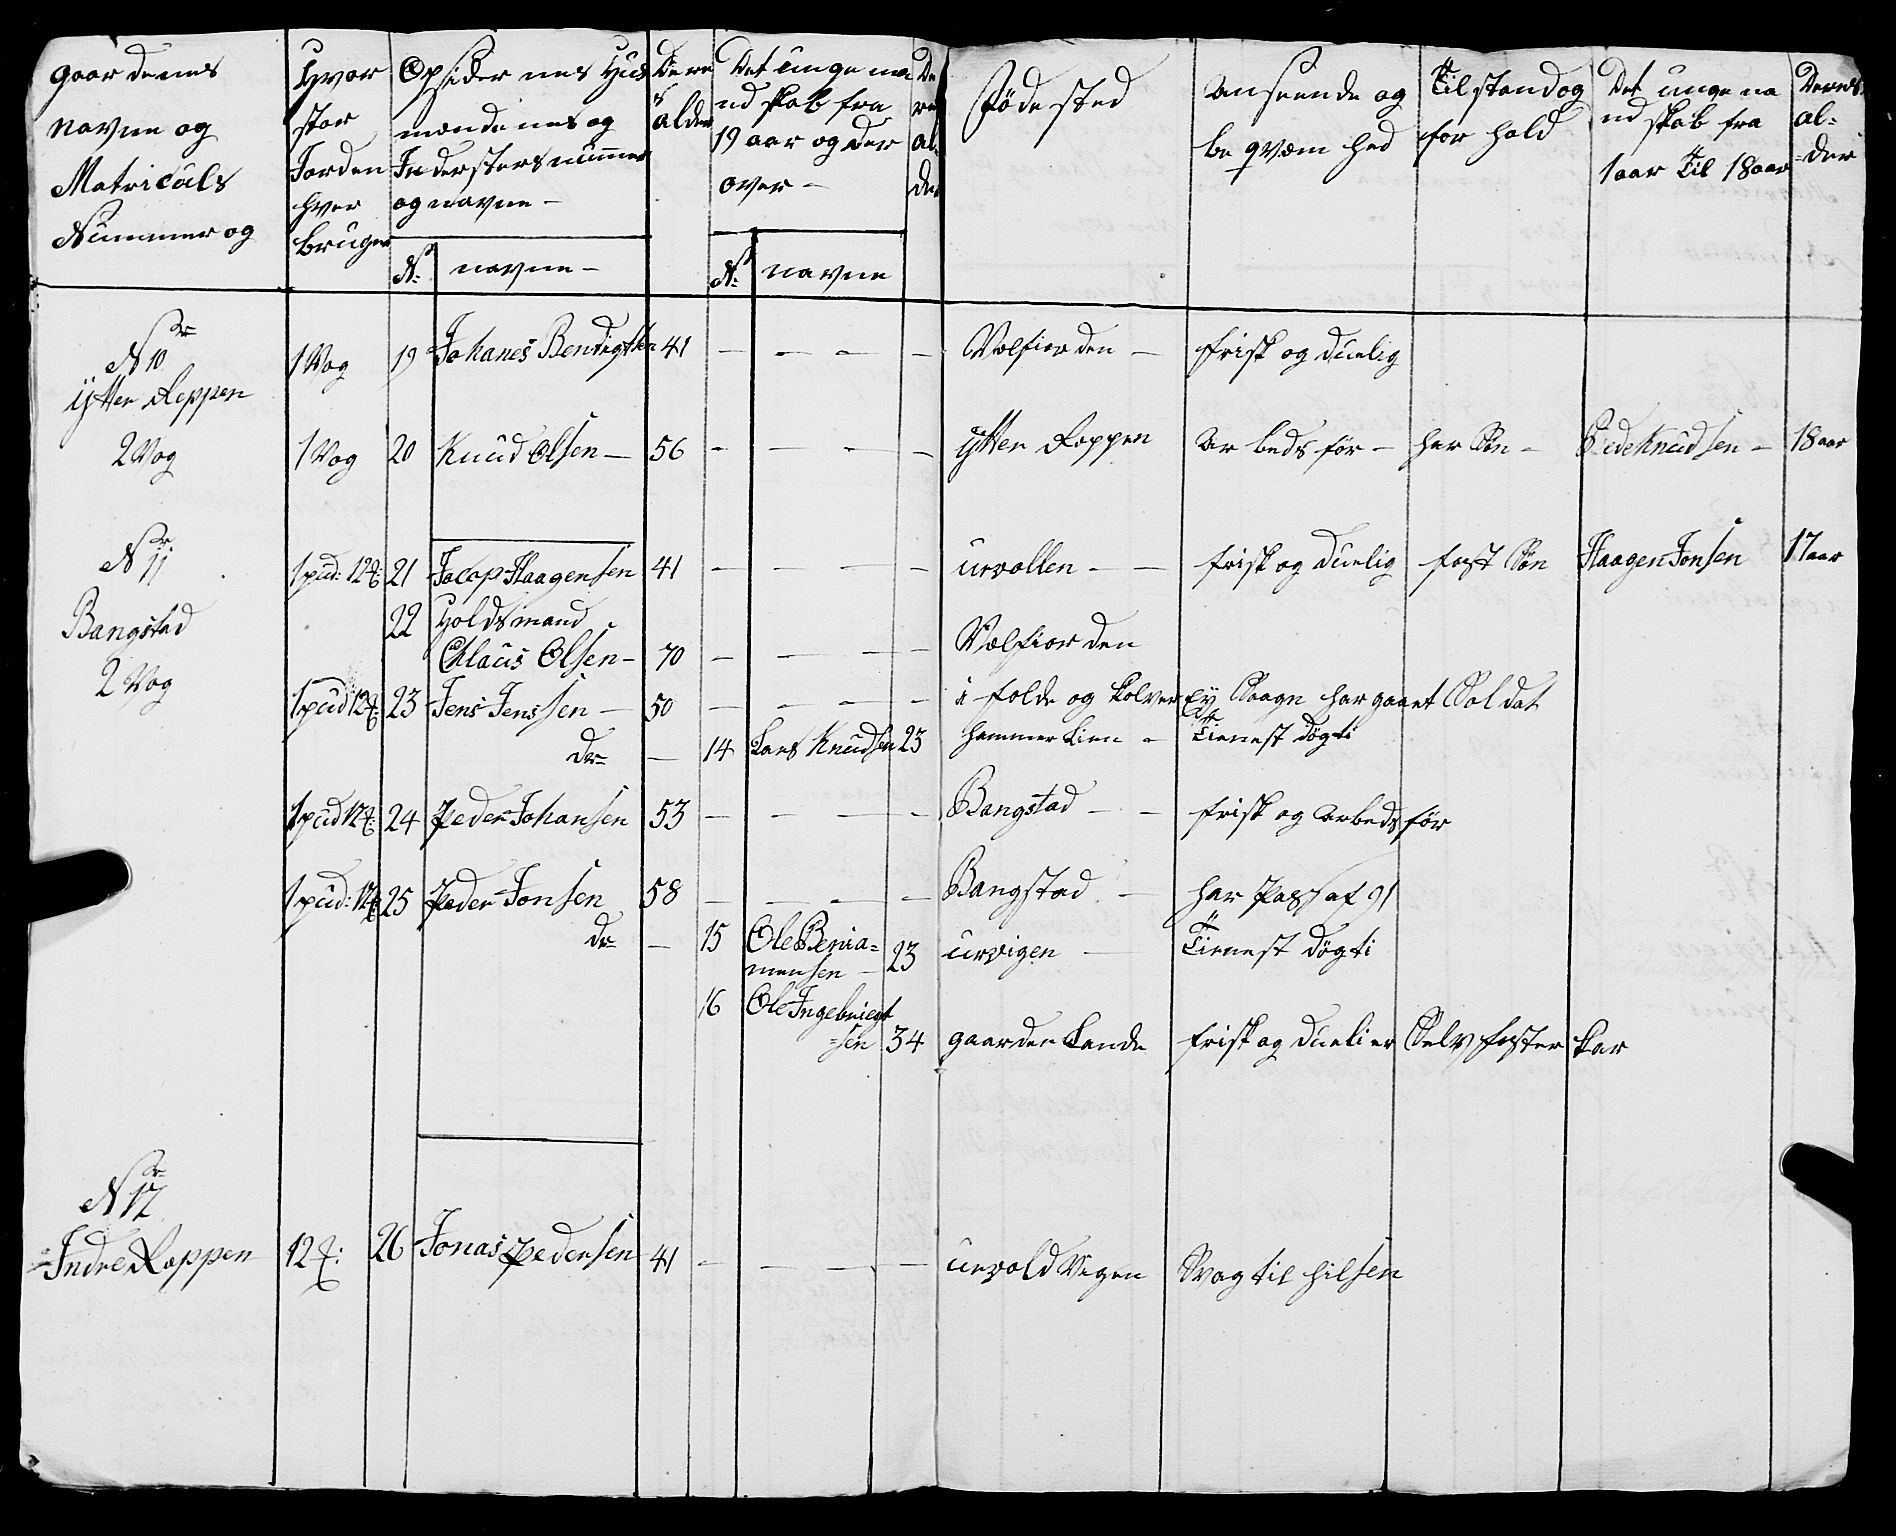 gaardenes
navne og
Matriculs
Nummer og
Hvor
stor
Jorden
hver
bruger
Opsidernes Hus
mændenes og
Indersters nummer
og navne –
No navne –
Dere
s
alder
Det unge ma
ndskab fra
19 aar og der
over –
No navne
De
res
al
der
Fødested
anseende og
beqvæmhed
Tilstand og
forhold
Det unge ma
ndskab fra
1 aar Til 18 aar
Deres
al-
der
Nr 10
ÿtter Roppen
2 Vog
1 Vog 19 Johanes Bendigtsen 41 – – – – Velfiorden – frisk og duelig
1 Vog 20 Knud Olsen – 56 – – – – ÿtter Roppen arbedsfør – har Søn – Pede Knudsen – 18 aar
Nr 11
Bangstad
2 Vog
1 pud: 12 21 Jacop Haagensen 41 – – – – urvollen – – frisk og duelig fast Søn Haagen Jonsen 17 aar
22 Holdsmand
Claus Olsen – 70 – – – Velfiorden
1 pud 12 23 Jens Jenssen – 50 – – – – i folde og kolver Eÿ Saagn har gaaet Soldat
do – 14 Lars Knudsen 23 hammer Lien – Tienest døgti
1 pud 12 24 Peder Johansen 53 – – – – Bangstad – – frisk og arbedsfør
1 pud: 12 25 Peder Jonsen 58 – – – – Bangstad – har Pass af 91
do – 15 Ole Benia=
mensen – 23 urvigen – Tienest døgti
16 Ole Ingebrigt
=sen 34 gaarden Lande frisk og dueli er Selv fosterkar
Nr 12
Indre Roppen 12 26 Jonas Pedersen 41 – – – – urvold Vegen Svag til hilsen